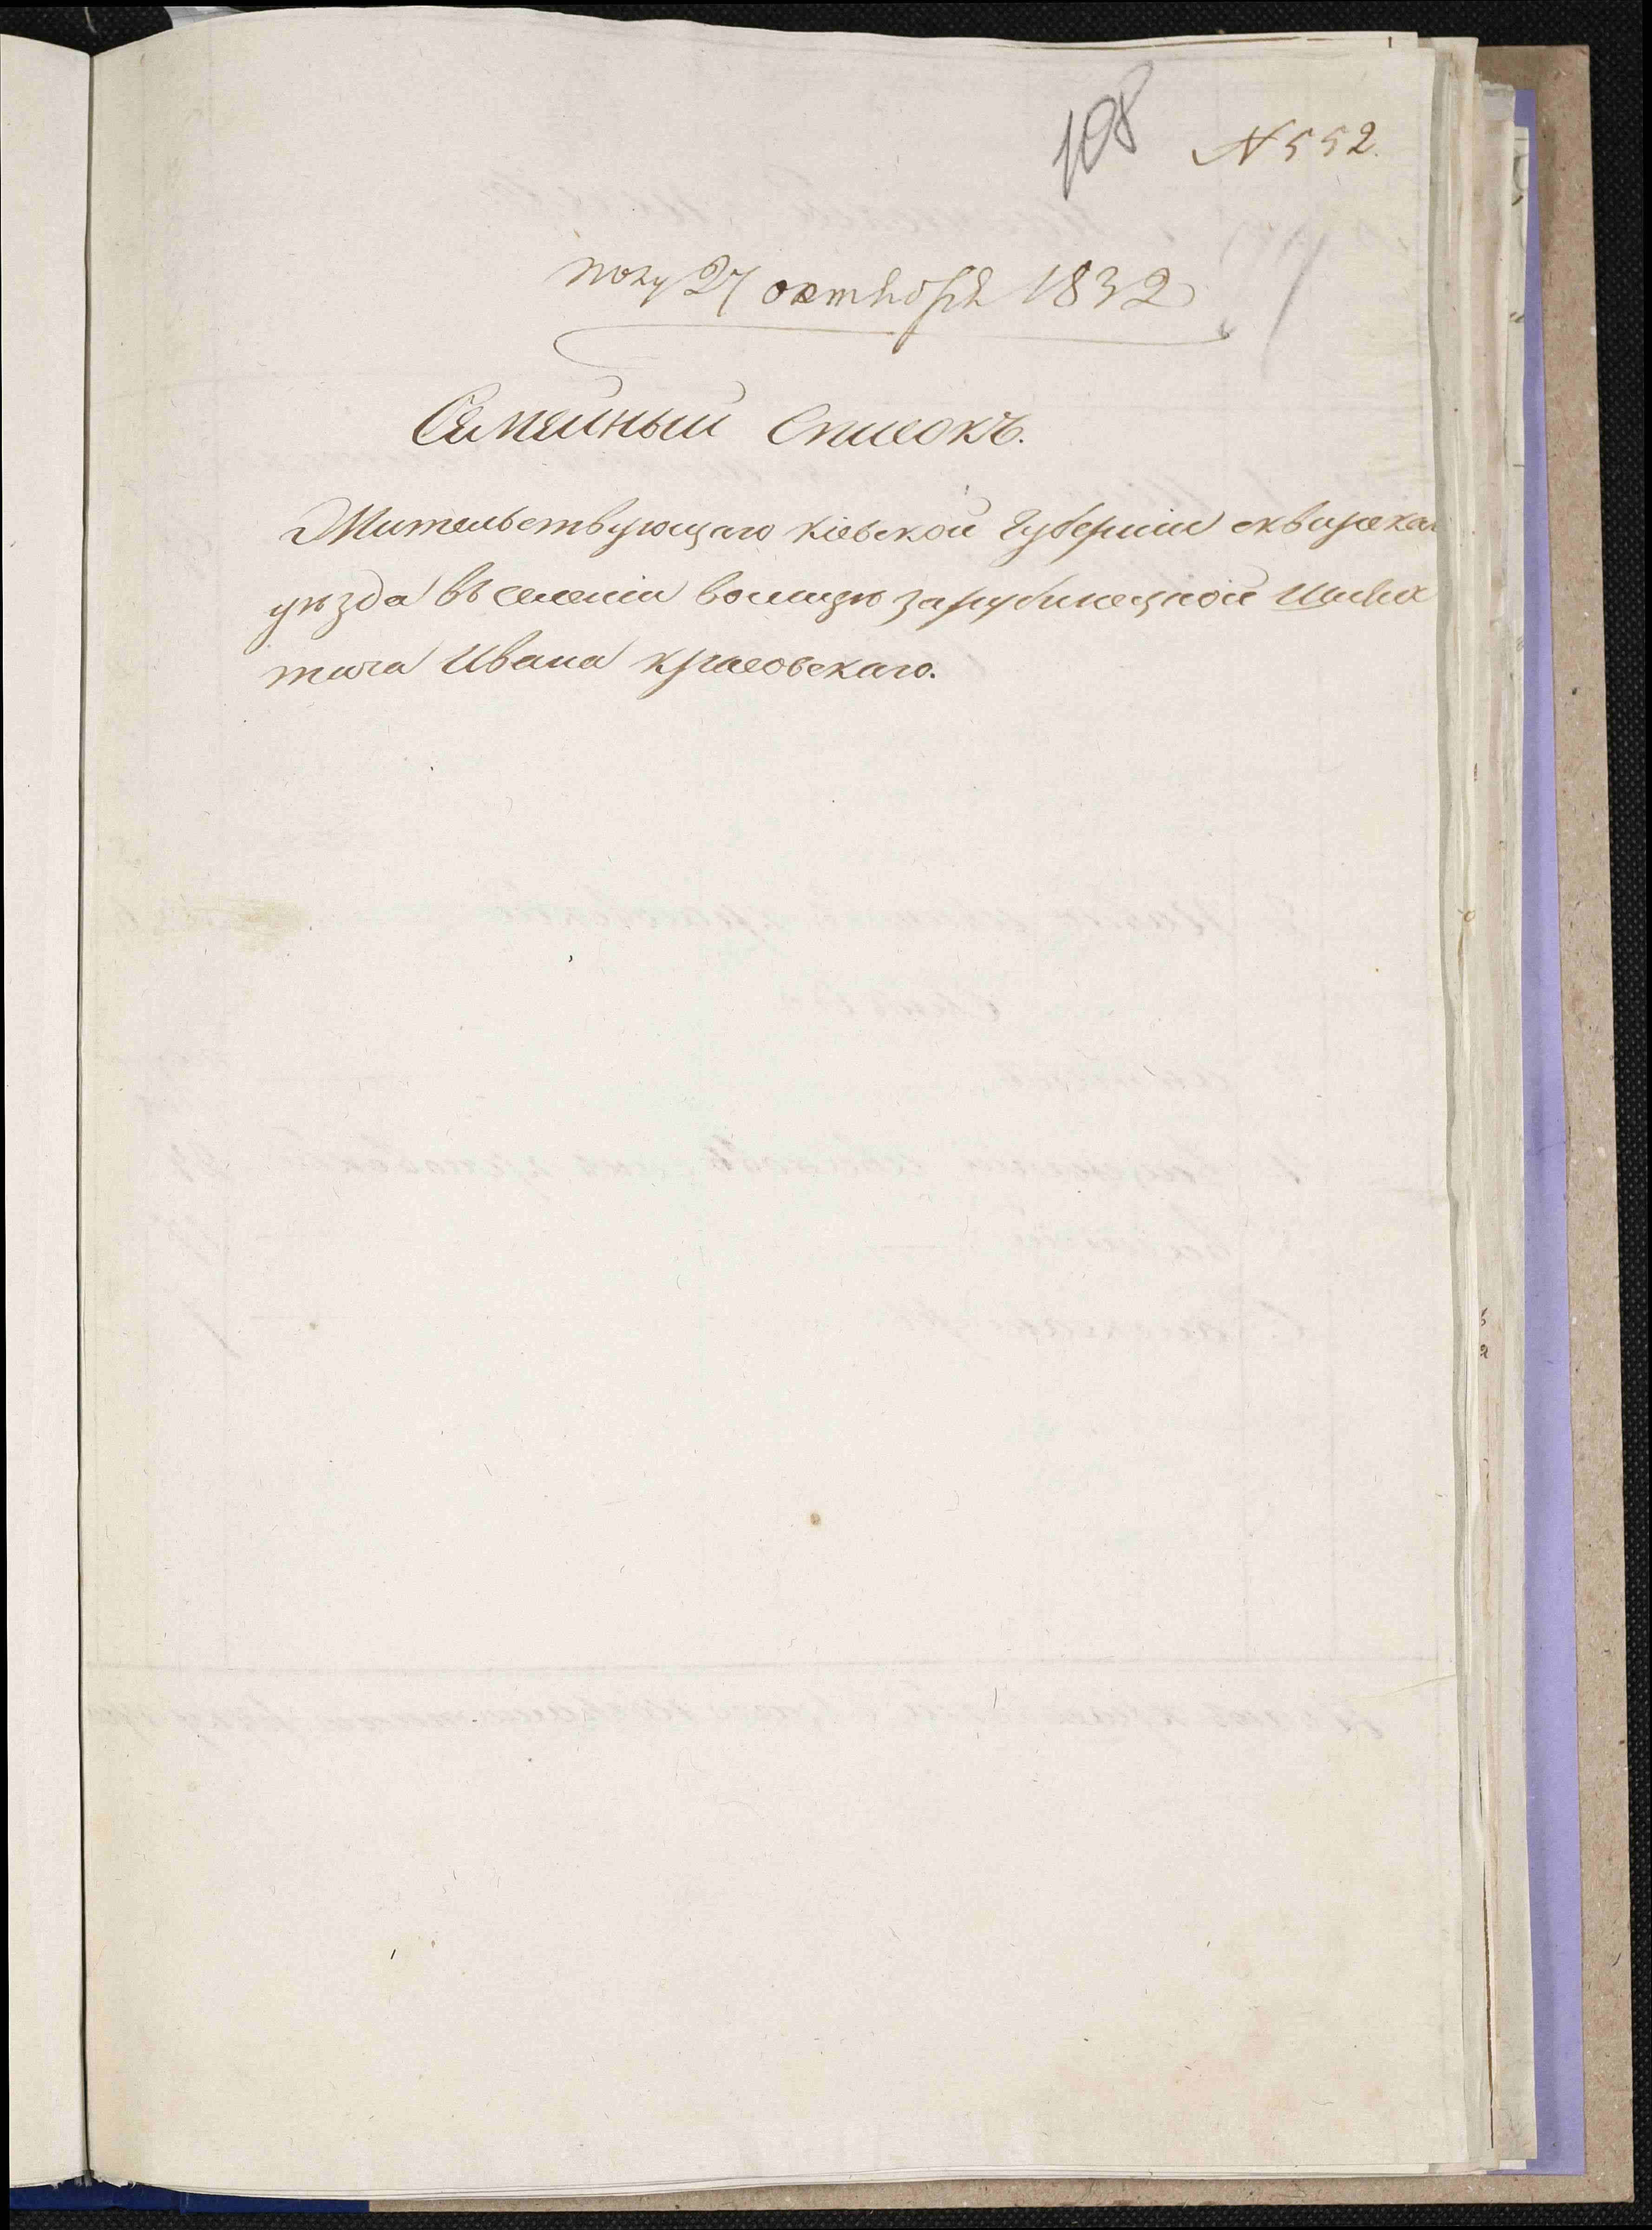 108
N 552.
полу 27 октября 1832
Семейный Списокъ.
Жительствующаго кіевской Губерніи сквирска
уѣзда въ селеніи волицѣ зарубинецкой Шлях
тича Ивана красовскаго.